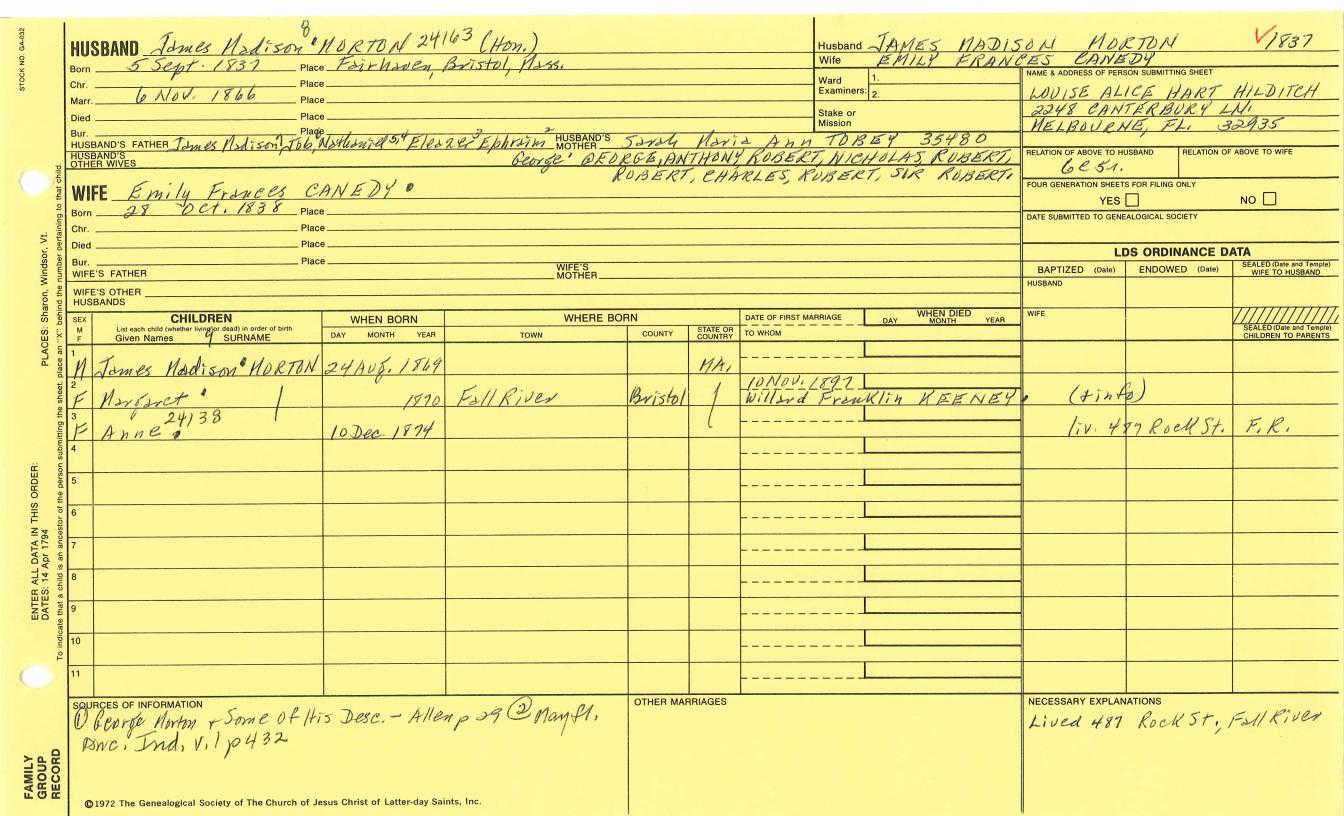 STOCK NO. GA-032
8
HUSBAND James Madison MORTON 24163 (Hon.)
Born 5 Sept. 1837 Place Fairhaven, Bristol, Mass.
Chr. Place
Marr. 6 Nov. 1866 Place
Died Place
Bur. Place
HUSBAND'S FATHER James Madison7, Job6, Nathaniel54 Eleazer3 Ephraim2 HUSBAND'S MOTHER Sarah Maria Ann TOBEY 35480
HUSBAND'S OTHER WIVES George1 GEORGE, ANTHONY, ROBERT, NICHOLAS, ROBERT,
ROBERT, CHARLES, ROBERT, SIR ROBERT.
WIFE Emily Frances CANEDY
Born 28 Oct. 1838 Place
Chr. Place
Died Place
Bur. Place
WIFE'S FATHER WIFE'S MOTHER
WIFE'S OTHER HUSBANDS
Husband JAMES MADISON MORTON ✓1837
Wife EMILY FRANCES CANEDY
Ward 1.
Examiners: 2.
Stake or
Mission
NAME & ADDRESS OF PERSON SUBMITTING SHEET
LOUISE ALICE HART HILDITCH
2248 CANTERBURY LN.
MELBOURNE, FL. 32935
RELATION OF ABOVE TO HUSBAND RELATION OF ABOVE TO WIFE
6C5r.
FOUR GENERATION SHEETS FOR FILING ONLY
YES NO
DATE SUBMITTED TO GENEALOGICAL SOCIETY
LDS ORDINANCE DATA
BAPTIZED (Date) ENDOWED (Date) SEALED (Date and Temple) WIFE TO HUSBAND
HUSBAND
WIFE
SEALED (Date and Temple) CHILDREN TO PARENTS
SEX M F CHILDREN WHEN BORN WHERE BORN DATE OF FIRST MARRIAGE WHEN DIED
List each child (whether living or dead) in order of birth
Given Names 9 SURNAME DAY MONTH YEAR TOWN COUNTY STATE OR COUNTRY TO WHOM DAY MONTH YEAR
1
M James Madison MORTON 24 Aug. 1869 MA.
2 10 Nov. 1897
F Margaret 1870 Fall River Bristol Willard Franklin KEENEY. (+info)
3 24138
F Anne 10 Dec 1874 liv. 487 Rock St. F.R.
4
5
6
7
8
9
10
11
SOURCES OF INFORMATION
① George Morton + Some of His Desc. - Allen p 29 ② Mayfl.
Anc. Ind, v.1 p 432
OTHER MARRIAGES
NECESSARY EXPLANATIONS
Lived 487 Rock St., Fall River
©1972 The Genealogical Society of The Church of Jesus Christ of Latter-day Saints, Inc.
FAMILY
GROUP
RECORD
ENTER ALL DATA IN THIS ORDER:
DATES: 14 Apr 1794
PLACES: Sharon, Windsor, Vt.
To indicate that a child is an ancestor of the person submitting the sheet, place an "X" behind the number pertaining to that child.